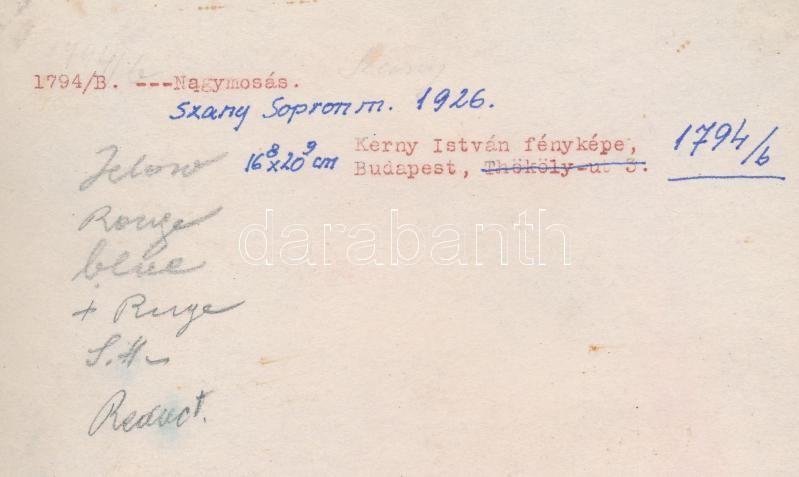 1794/B. ---Nagymosás.
Szany Sopron m. 1926.
16⁸x20⁹ cm
Kerny István fényképe,
Budapest, Thököly-ut 3.
1794/b
Rouge
bleue
+ Ruge
Reduct.
darabanth